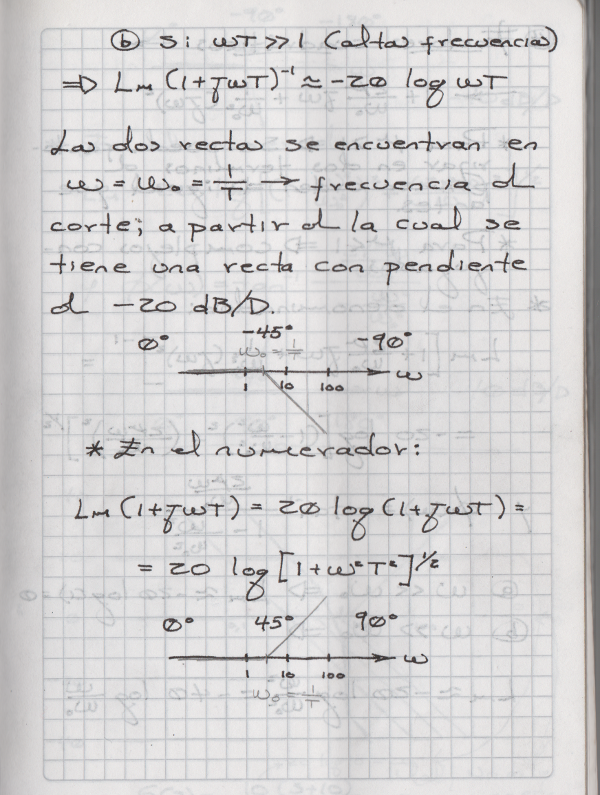 ⓑ Si ωT >> 1 (altas frecuencia)
⇒ Lm (1+jωT)⁻¹ ≈ -20 log ωT
Las dos rectas se encuentran en
ω = ω₀ = 1/T → frecuencia d
corte; a partir d la cual se
tiene una recta con pendiente
d -20 dB/D.
0° -45° -90°
ω₀ = 1/T
1 10 100 ω
* En el numerador:
Lm (1+jωT) = 20 log (1+jωT) =
= 20 log [1+ω²T²]^1/2
0° 45° 90°
1 10 100 ω
ω₀ = 1/T